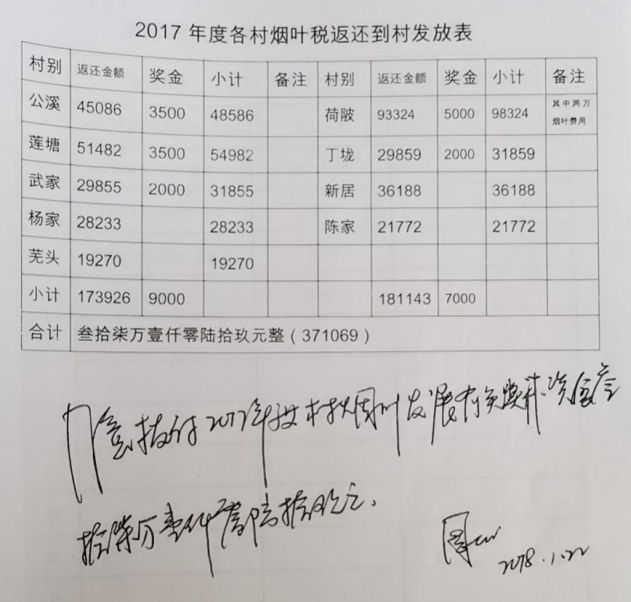 2017 年度各村烟叶税返还到村发放表
村别 返还金额 奖金 小计 备注 村别 返还金额 奖金 小计 备注
公溪 45086 3500 48586 荷陂 93324 5000 98324 其中两万烟叶费用
莲塘 51482 3500 54982 丁垅 29859 2000 31859
武家 29855 2000 31855 新居 36188 36188
杨家 28233 28233 陈家 21772 21772
芜头 19270 19270
小计 173926 9000 181143 7000
合计 叁拾柒万壹仟零陆拾玖元整（371069）
同意拨付2017年度 村烟叶发展
拾柒万壹仟零陆拾玖元。
2018.1.22